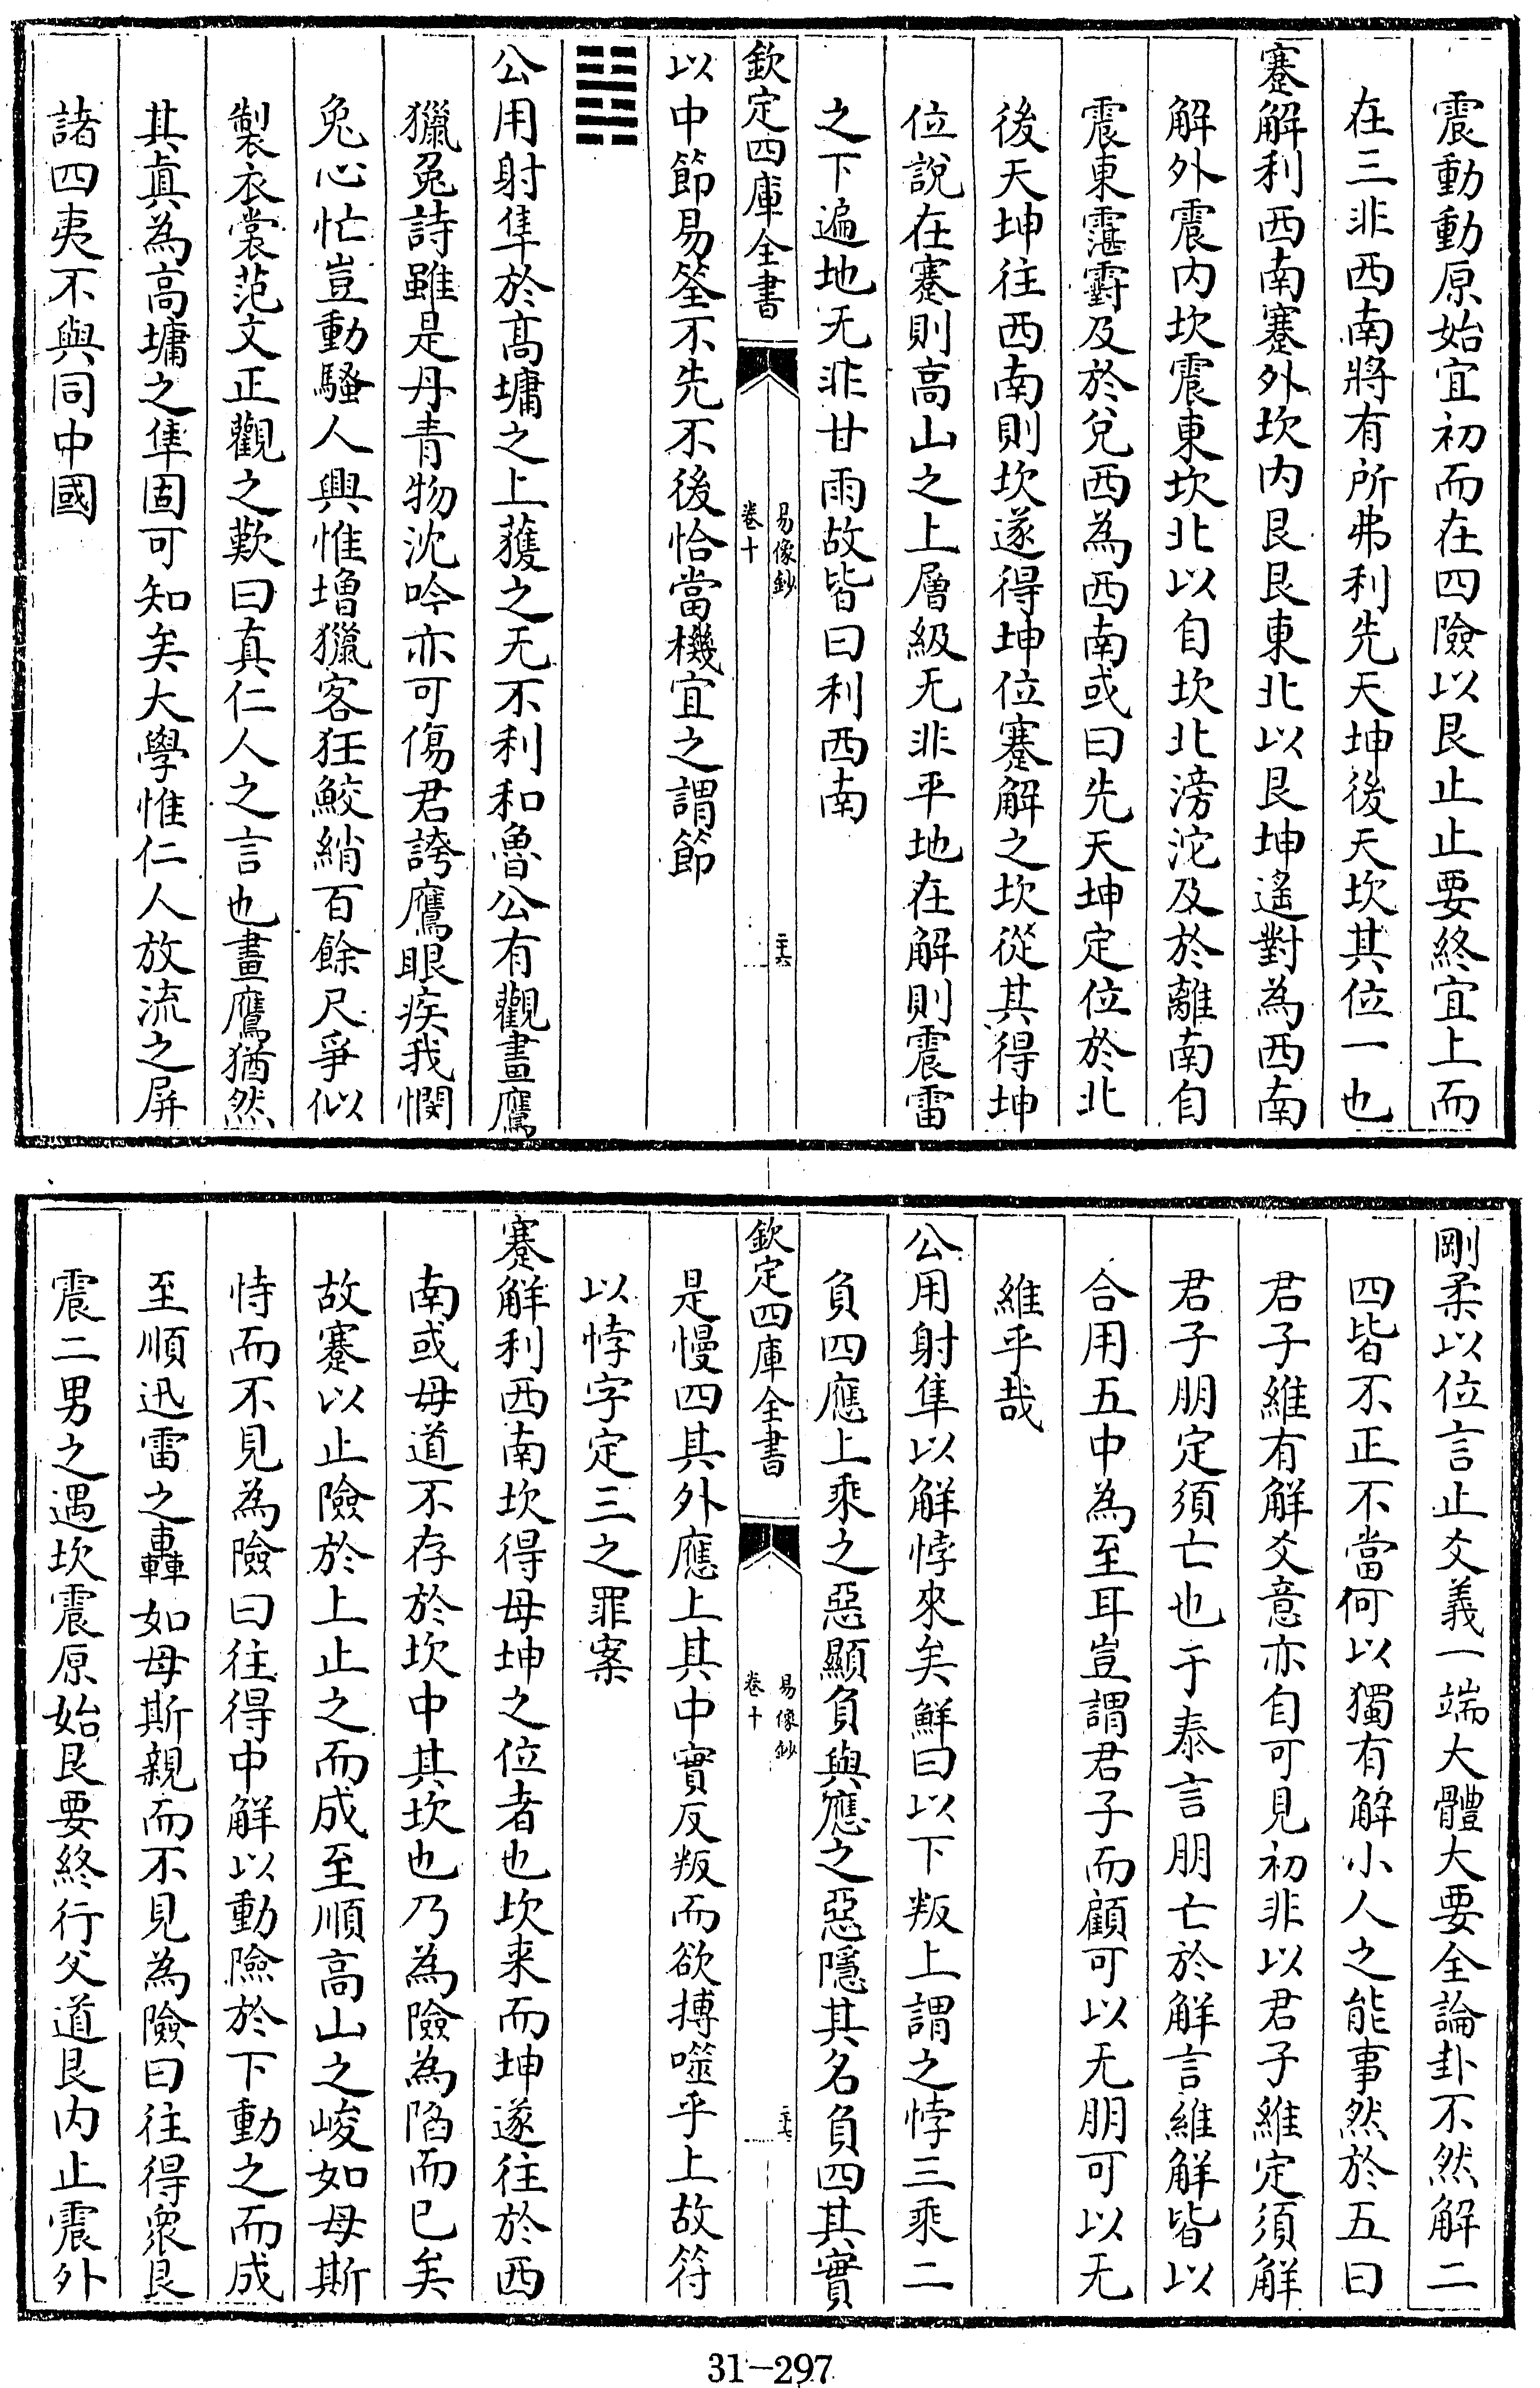 震動動原始宜初而在四險以艮止止要終宜上而
在三非西南將有所弗利先天坤後天坎其位一也
蹇解利西南蹇外坎内艮艮東北以艮坤遙對為西南
解外震内坎震東坎北以自坎北滂沱及於離南自
震東霮䨴及於兌西為西南或曰先天坤定位於北
後天坤往西南則坎遂得坤位蹇解之坎從其得坤
位說在蹇則高山之上層級无非平地在解則震雷
之下遍地无非甘雨故皆曰利西南
欽定四庫全書
易像鈔
卷十
二十六
以中節易筌不先不後恰當機宜之謂節
䷧
公用射隼於高墉之上獲之无不利和魯公有觀畫鷹
獵兔詩雖是丹青物沈吟亦可傷君誇鷹眼疾我憫
兔心忙豈動騷人興惟増獵客狂鮫綃百餘尺爭似
製衣裳范文正觀之歎曰真仁人之言也畫鷹猶然
其眞為高墉之隼固可知矣大學惟仁人放流之屏
諸四夷不與同中國
剛柔以位言止爻義一端大體大要全論卦不然解二
四皆不正不當何以獨有解小人之能事然於五曰
君子維有解爻意亦自可見初非以君子維定須解
君子朋定須亡也于泰言朋亡於解言維解皆以
合用五中為至耳豈謂君子而顧可以无朋可以无
維乎哉
公用射隼以解悖來矣鮮曰以下叛上謂之悖三乘二
負四應上乘之惡顯負與應之惡隱其名負四其實
欽定四庫全書
易像鈔
卷十
二十七
是慢四其外應上其中實反叛而欲搏噬乎上故符
以悖字定三之罪案
蹇解利西南坎得母坤之位者也坎来而坤遂往於西
南或母道不存於坎中其坎也乃為險為陷而已矣
故蹇以止險於上止之而成至順高山之峻如母斯
恃而不見為險曰往得中解以動險於下動之而成
至順迅雷之轟如母斯親而不見為險曰往得衆艮
震二男之遇坎震原始艮要終行父道艮内止震外
31-297